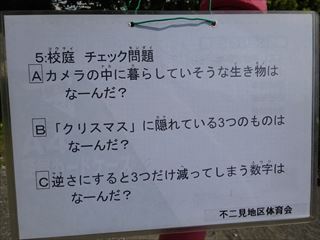 5:校庭 チェック問題
A カメラの中に暮らしていそうな生き物は
なーんだ？
B 「クリスマス」に隠れている3つのものは
なーんだ？
C 逆さにすると3つだけ減ってしまう数字は
なーんだ？
不二見地区体育会